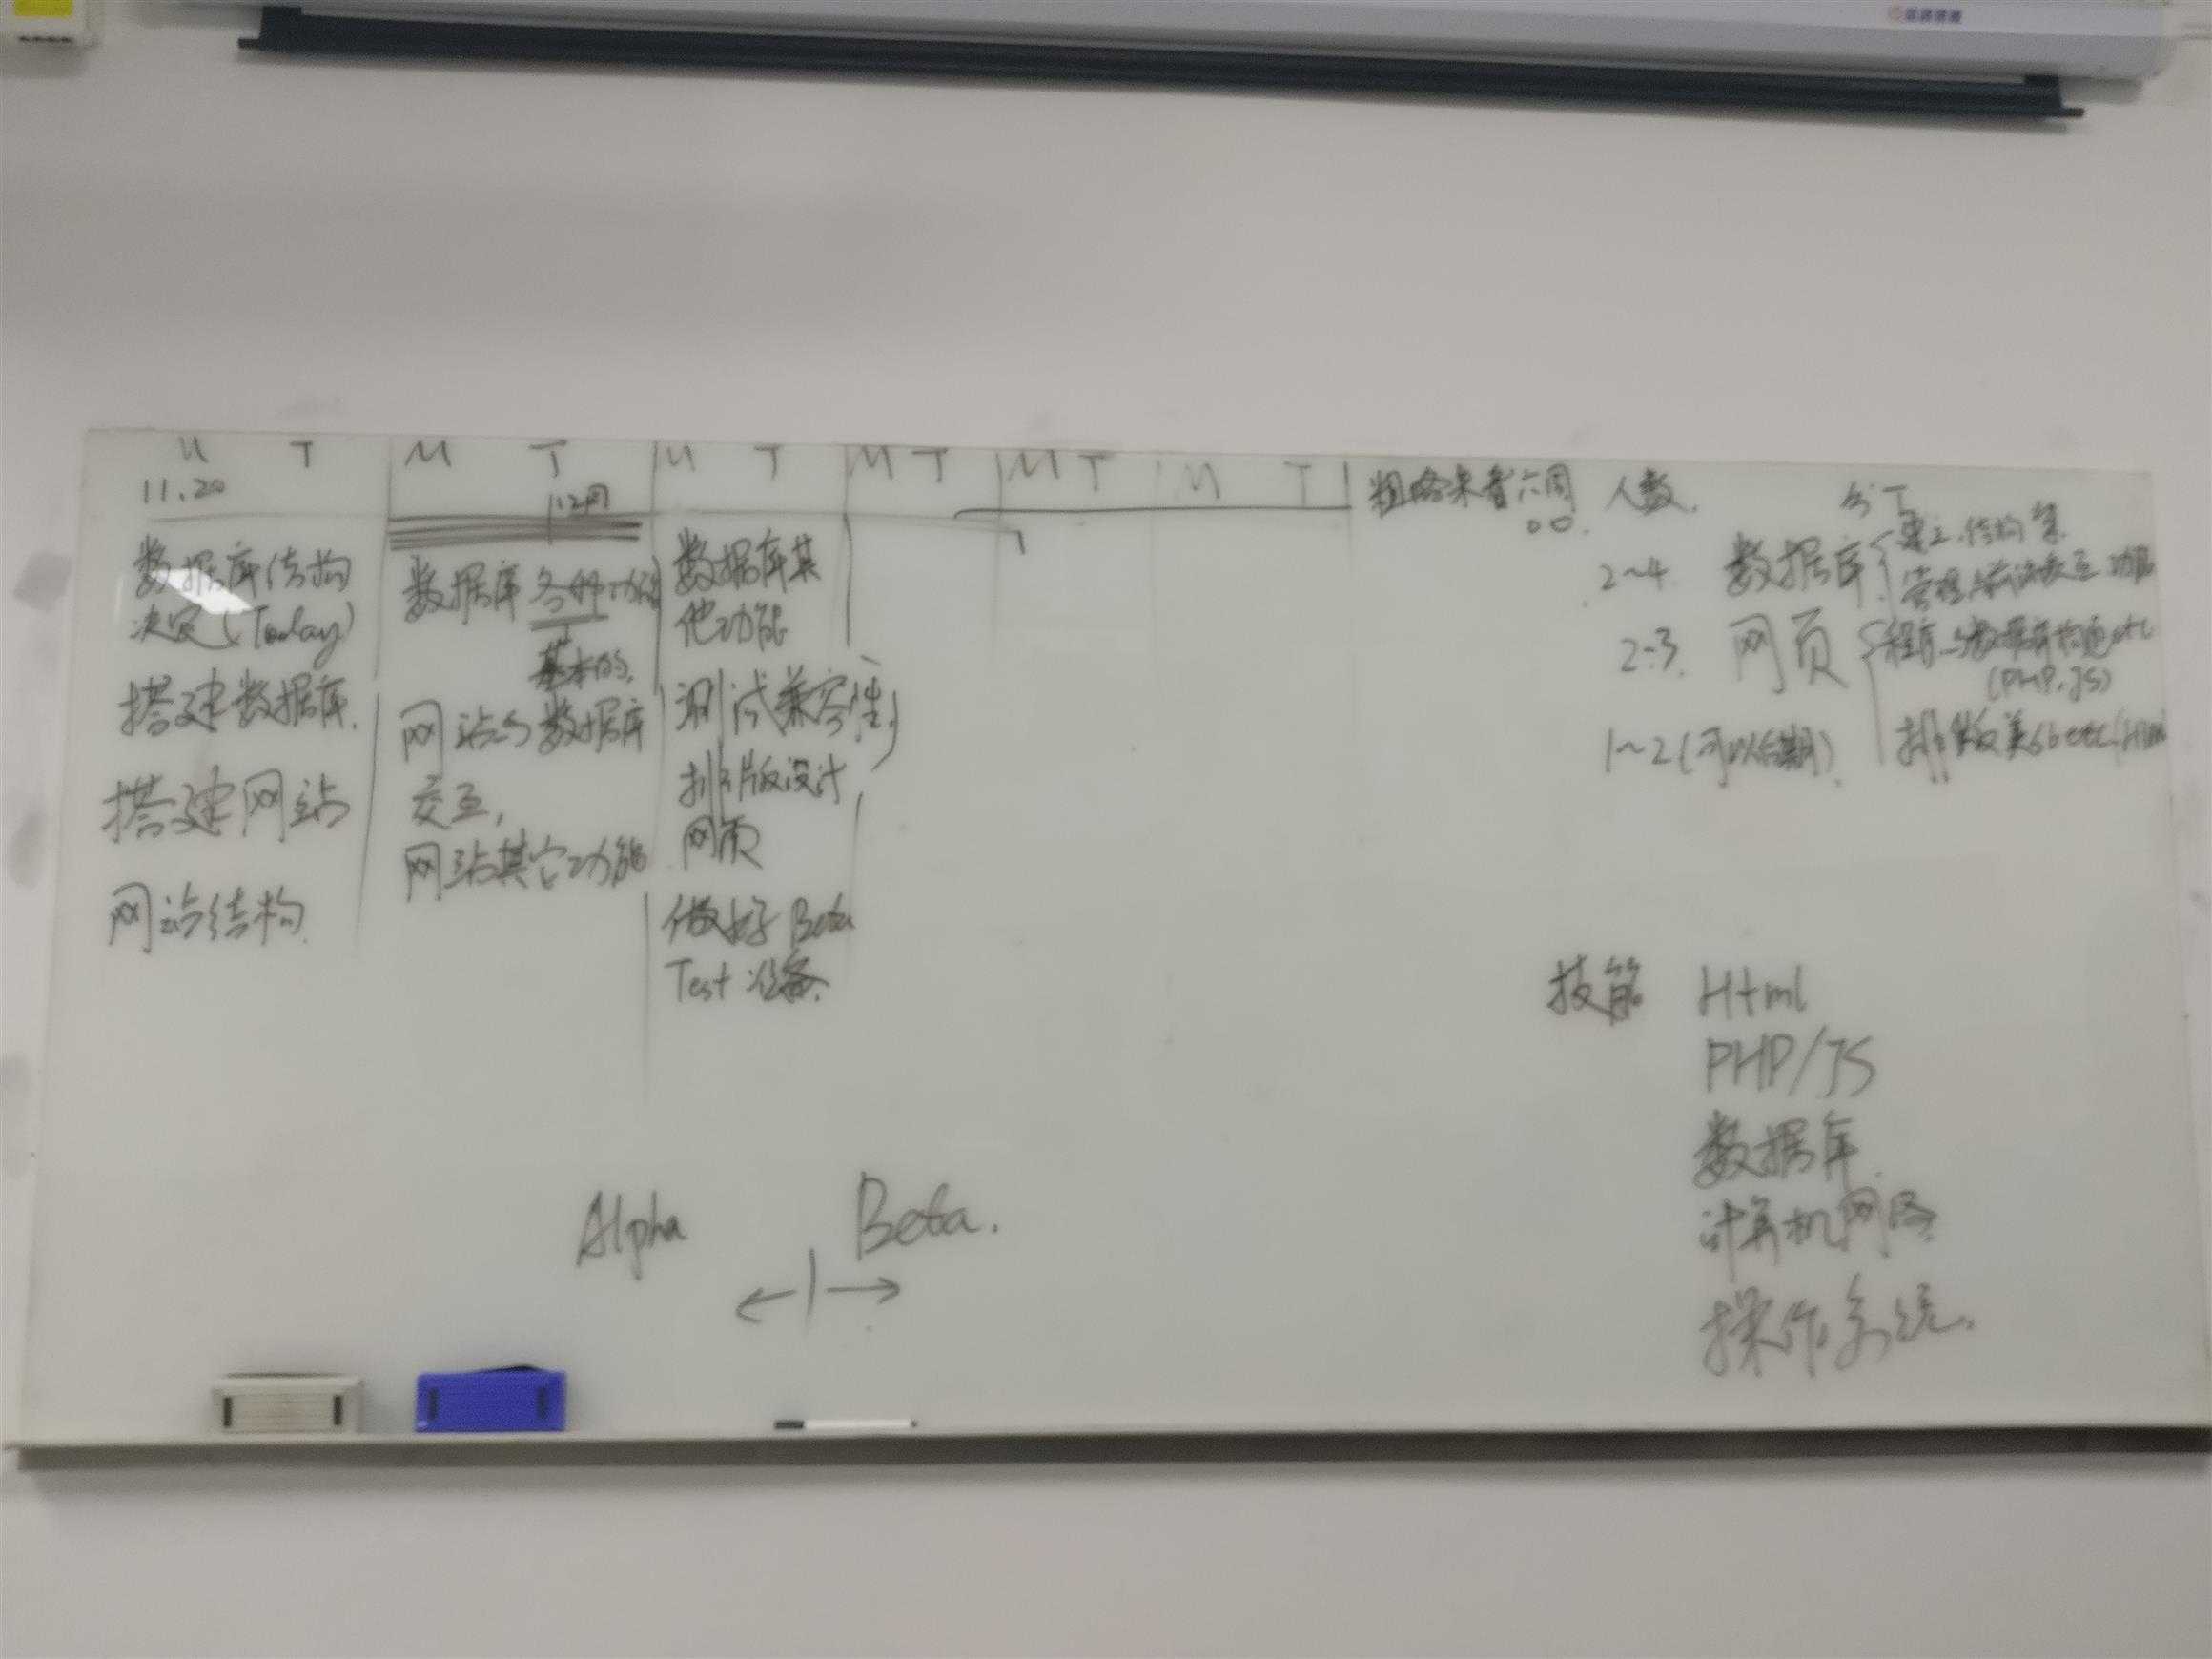 M T M T M T M T M T M T
11.20
12月
粗略来看六周
人数.
分工
数据库结构
决定(Today)
搭建数据库.
搭建网站
网站结构.
数据库各种功能
基本的.
网站与数据库
交互,
网站其它功能
数据库其
他功能
测试兼容性
排版设计
网页
做好Beta
Test 准备.
2~4 数据库
建立.结构
管理
2~3. 网页
程序
(PHP.JS)
1~2(可以后期)
排版美
Alpha Beta.
技能 Html
PHP/JS
数据库.
计算机网络
操作系统.